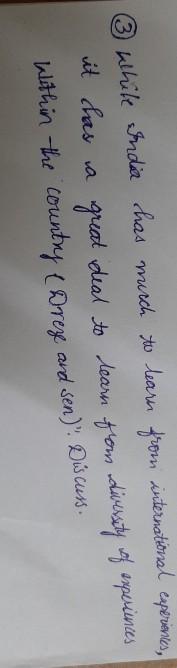 ③ While India has much to learn from international experiences,
it has a great deal to learn from diversity of experiences
within the country (Dreze and Sen)". Discuss.